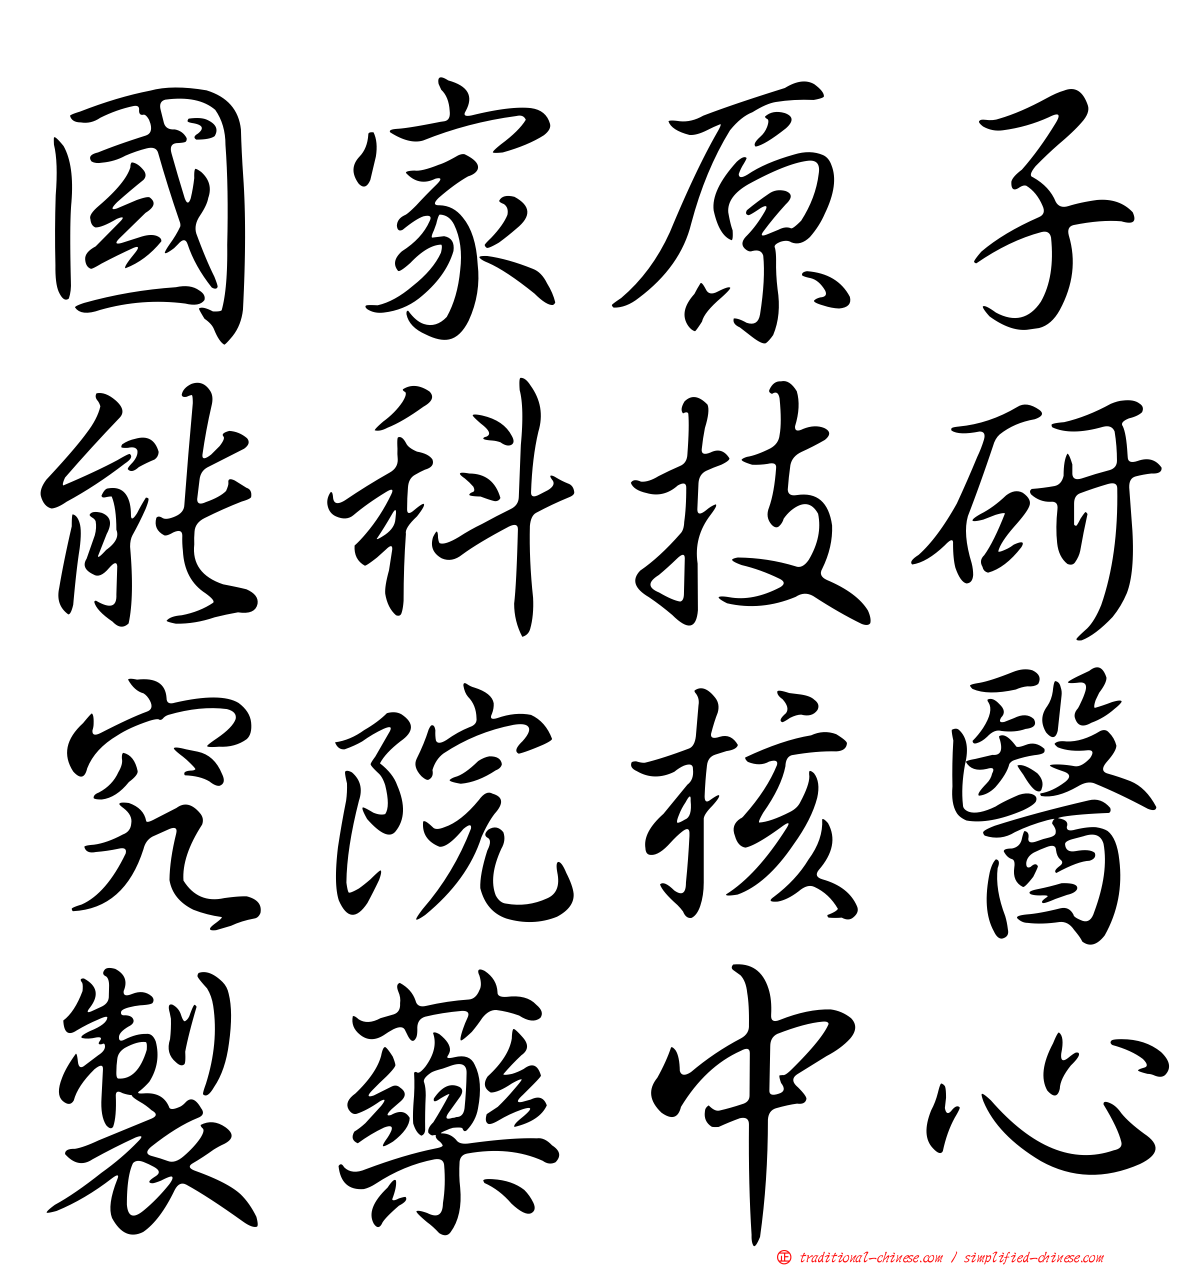 國家原子
能科技研
究院核醫
製藥中心
正 traditional-chinese.com / simplified-chinese.com